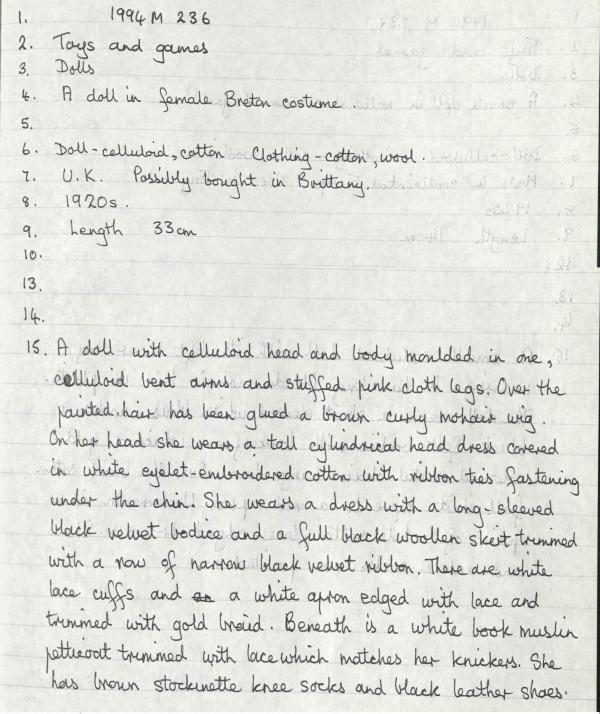 1. 1994 M 236
2. Toys and games
3. Dolls
4. A doll in female Breton costume.
5.
6. Doll-celluloid, cotton Clothing-cotton, wool.
7. U.K. Possibly bought in Brittany.
8. 1920s.
9. Length 33cm
10.
13.
14.
15. A doll with celluloid head and body moulded in one,
celluloid bent arms and stuffed pink cloth legs. Over the
painted hair has been glued a brown curly mohair wig.
On her head she wears a tall cylindrical head dress covered
in white eyelet-embroidered cotton with ribbon ties fastening
under the chin. She wears a dress with a long-sleeved
black velvet bodice and a full black woollen skirt trimmed
with a row of narrow black velvet ribbon. There are white
lace cuffs and a white apron edged with lace and
trimmed with gold braid. Beneath is a white book muslin
petticoat trimmed with lace which matches her knickers. She
has brown stockinette knee socks and black leather shoes.